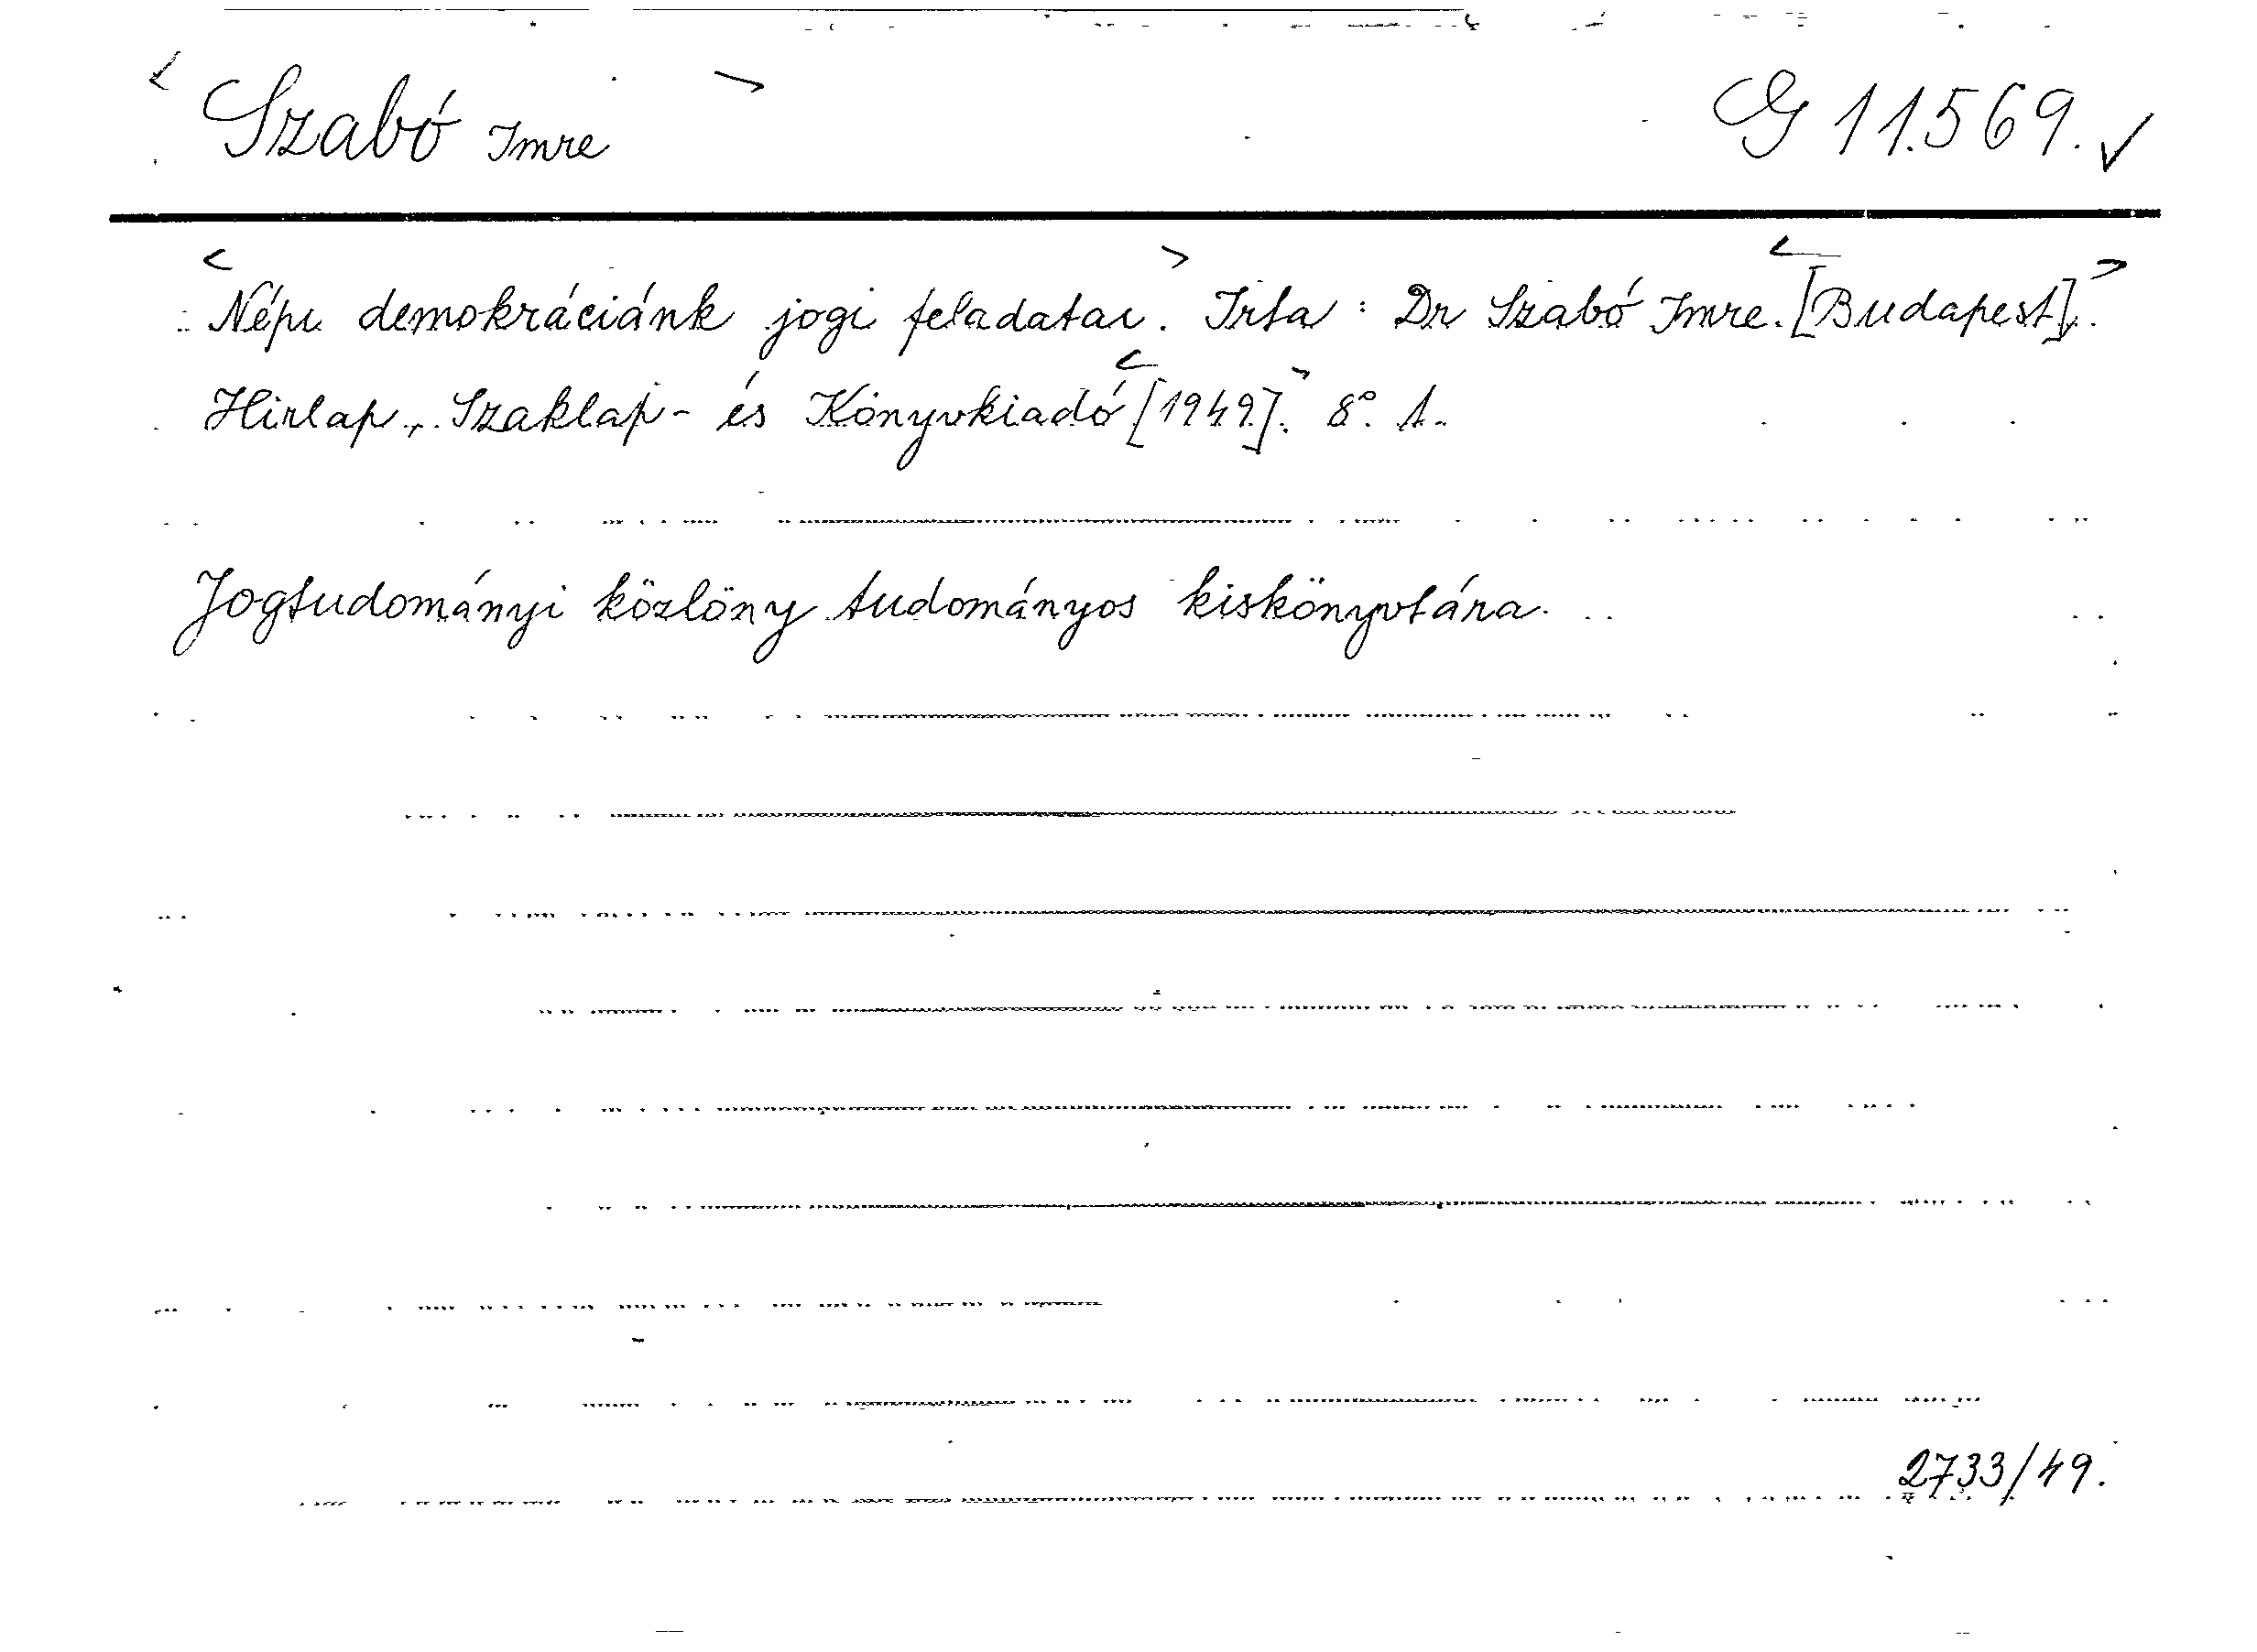 < Szabó Imre > G 11.569. ✓
<Népi demokráciánk jogi feladatai.> Irta: Dr Szabó Imre. <[Budapest],>
Hirlap-, Szaklap- és Könyvkiadó <[1949].> 8°. 1.
Jogtudományi közlöny tudományos kiskönyvtára.
2733/49.